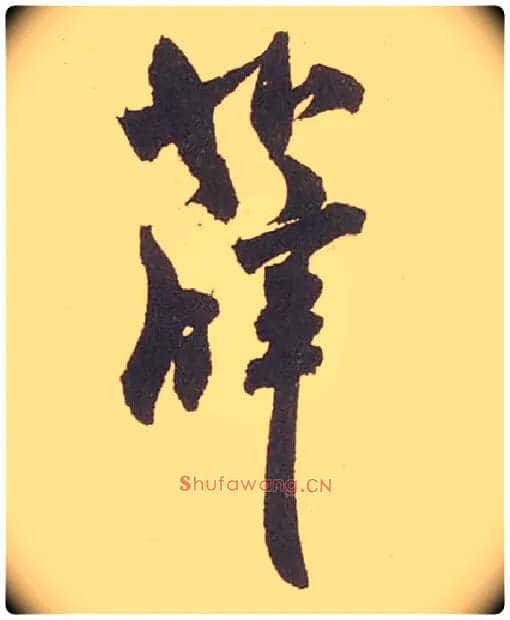 薛
Shufawang.CN